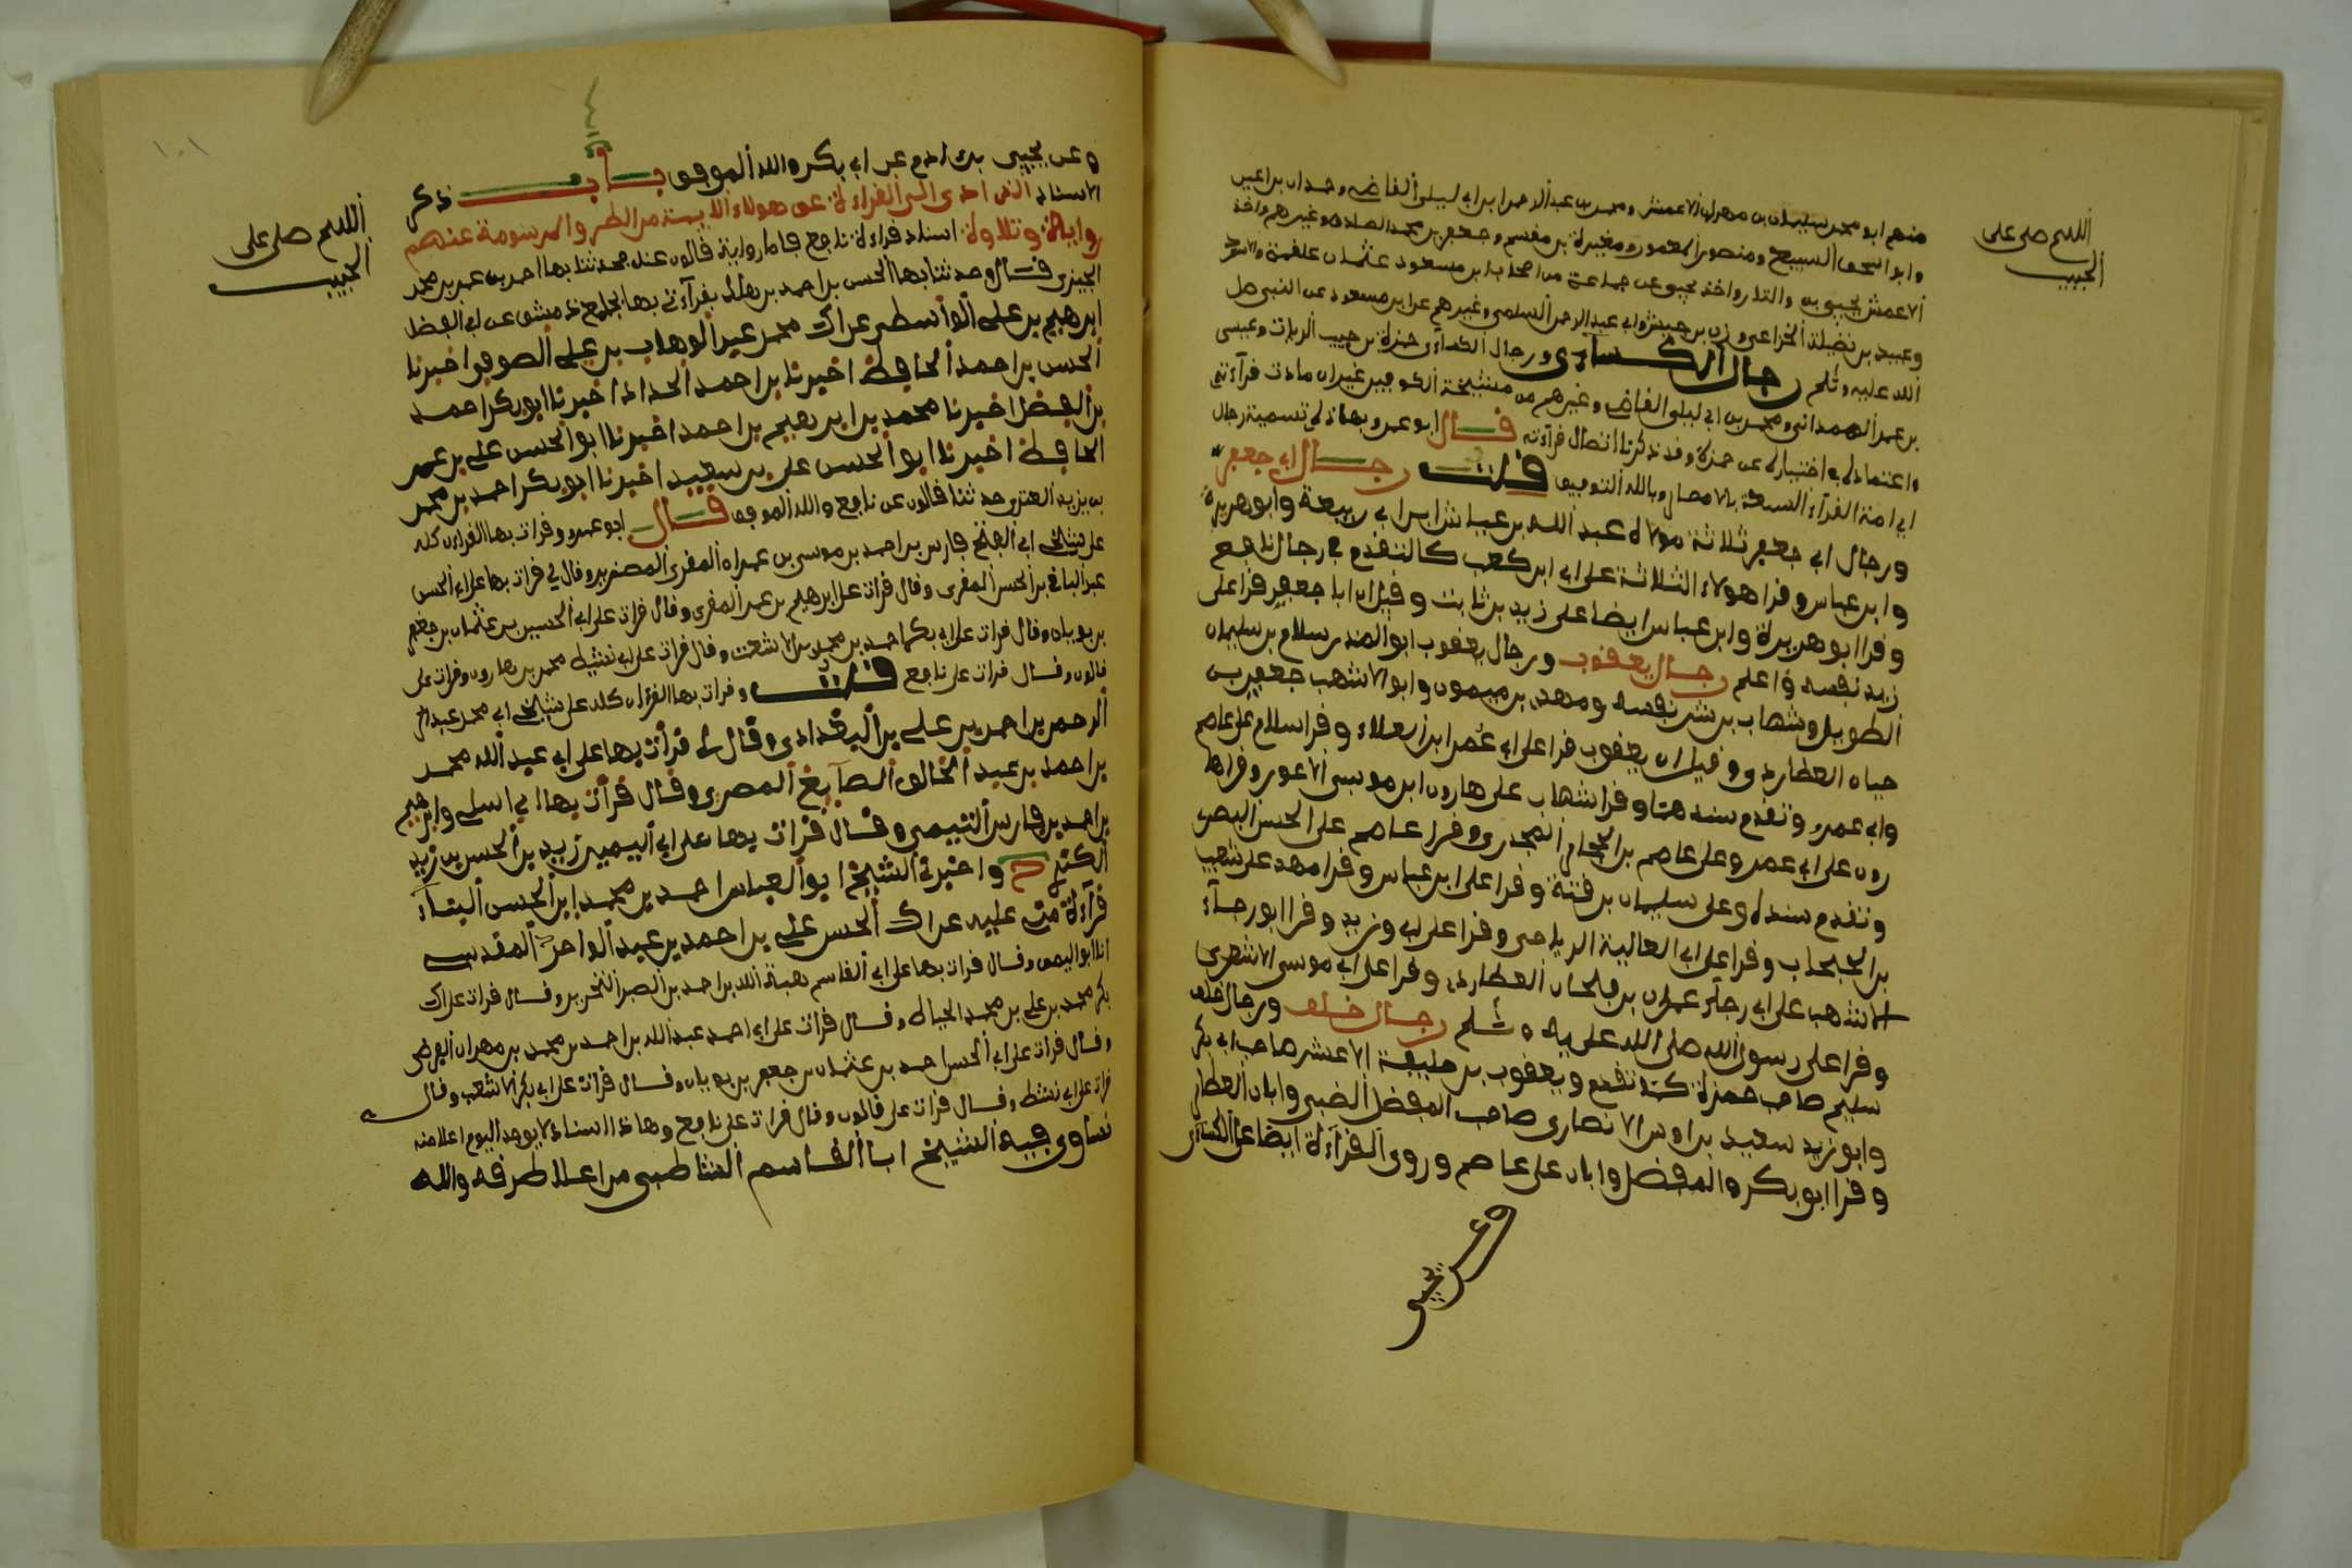 اللهم صل على
الحبيب
منهم ابو محمد سليمان بن مهران الاعمش ومحمد بن عبد الرحمن ابن ابي ليلى القاضي وحمران بن اعين
وابو اسحق السبيعي ومنصور بن المعمور ومغيرة بن مقسم وجعفر بن محمد الصادق وغيرهم واخذ
الاعمش عن يحيى بن وثاب واخذ يحيى عن جماعة من اصحاب ابن مسعود علقمة والاسود
وعبيد بن نضيلة الخزاعي وزر بن حبيش وابي عبد الرحمن السلمي وغيرهم عن ابن مسعود عن النبي صلى
الله عليه وسلم رجال الكسائي ورجال الكسائي حمزة بن حبيب الزيات وعيسى
بن عمر الهمداني ومحمد بن ابي ليلى القاضي وغيرهم من مشيخة الكوفيين غير ان مادة قرآءته
واعتماده في اختياره عن حمزة وقد ذكرنا اتصال قرآءته قال ابو عمرو بهاذا في تسمية رجال
ايمة القرآء السبعة بالامصار وبالله التوفيق قلت رجال ابي جعفر
ورجال ابي جعفر ثلاثة مولاه عبد الله بن عياش ابن ابي ربيعة وابو هريرة
وابن عباس وقرا هولاء الثلاثة على ابي ابن كعب كما تقدم في رجال نافع
وقرا ابو هريرة وابن عباس ايضا على زيد بن ثابت وقيل ان ابا جعفر قرا على
زيد نفسه واعلم رجال يعقوب ورجال يعقوب ابو المنذر سلام بن سليمان
الطويل وشهاب بن شرنفسه ومهدي بن ميمون وابو الاشهب جعفر بن
حيان العطاردي وقيل ان يعقوب قرا على ابي عمرا بن العلاء وقرا سلام على عاصم
وابي عمرو وتقدم سندهما وقرا شهاب على هارون ابن موسى الاعور وقرا ها
رون على ابي عمرو وعلى عاصم بن الحجاج الجحدري وقرا عاصم على الحسن البصري
وتقدم سنده وعلى سليمان بن قتة وقرا على ابن عباس وقرا مهدي على شعيب
بن الحبحاب وقرا على ابي العالية الرياحي وقرا على ابي وزيد وقرا ابو رجآء
الاشهب على ابي رجآء عمران بن ملحان العطاردي وقرا على ابي موسى الاشعري
وقرا على رسول الله صلى الله عليه وسلم رجال خلف ورجال خلف
سليم صاحب حمزة كما تقدم ويعقوب بن خليفة الاعشى صاحب ابي بكر
وابو زيد سعيد بن اوس الانصاري صاحب المفضل الضبي وابان العطار
وقرا ابو بكر والمفضل وابان على عاصم وروى القرآءة ايضا عن الكسآئي
وعن يحيى
١٠١
اللهم صل على
الحبيب
وعن يحيى بن ادم عن ابي بكر والله الموفق باب ذكر
الاسناد الذي ادى الي القراءة عن هولاء الايمة من الطرق المرسومة عنهم
رواية وتلاوة اسناد قراءة نافع فاما رواية قالون عنه فحدثنا بها احمد بن عمر بن محمد
الجيزي قال وحدثنا بها الحسن بن احمد بن هلال بقرآءتي بها بجامع دمشق عن ابي الفضل
ابرهيم بن علي الواسطي عن ابي محمد عبد الوهاب بن علي الصوفي اخبرنا
الحسن بن احمد الحافظ اخبرنا بن احمد الحداد اخبرنا ابو بكر احمد
بن الفضل اخبرنا محمد بن ابرهيم بن احمد اخبرنا ابو الحسن علي بن عمر
الحافظ اخبرنا ابو الحسن علي بن سعيد اخبرنا ابو بكر احمد بن محمد
بن يزيد العنزي حدثنا قالون عن نافع والله الموفق قال ابو عمرو وقرات بها القرءان كله
على شيخي ابي الفتح فارس بن احمد بن موسى بن عمران المقرئ المصرير وقال لي قرات بها على ابي الحسن
عبد الباقي بن الحسن المقرئ وقال قرات على ابرهيم بن عمر المقرئ وقال قرات على ابي الحسين بن عثمان بن جعفر
بن بويان وقال قرات على ابي بكر احمد بن محمد بن الاشعث وقال قرات على ابي نشيط محمد بن هارون وقرات على
قالون وقال قرات على نافع قلت وقرات بها القرءان كله على شيخي ابي محمد عبد
الرحمن بن احمد بن علي بن البغدادي وقال لي قرأت بها على ابي عبد الله محمد
بن احمد بن عبد الخالق الصآيغ المصري وقال قرأت بها وابرهيم
بن احمد بن فارس التيمي وقال قرات بها على ابي اليمن زيد بن الحسن بن زيد
الكندي ح واخبرني الشيخ ابو العباس احمد بن محمد ابن الحسن البنآء
قرآءة مني عليه عن ابي الحسن علي بن احمد بن عبد الواحد المقدسي
انا ابو اليمن وقال قرات بها على ابي القاسم هبة الله بن احمد بن الحريري وقال قرات على ابي
بكر محمد بن علي بن محمد الخياط وقال قرات على ابي احمد عبد الله بن احمد بن محمد بن مهران الفرضي
وقال قرات على ابي الحسن احمد بن عثمان بن جعفر بن بويان وقال قرات على ابي بكر الاشعث وقال
قرات على ابي نشيط وقال قرات على قالون وقال قرات على نافع وهاذا اسناد لا يوجد اليوم اعلا منه
نساوي فيه الشيخ ابا القاسم الشاطبي من اعلا طرقه والله